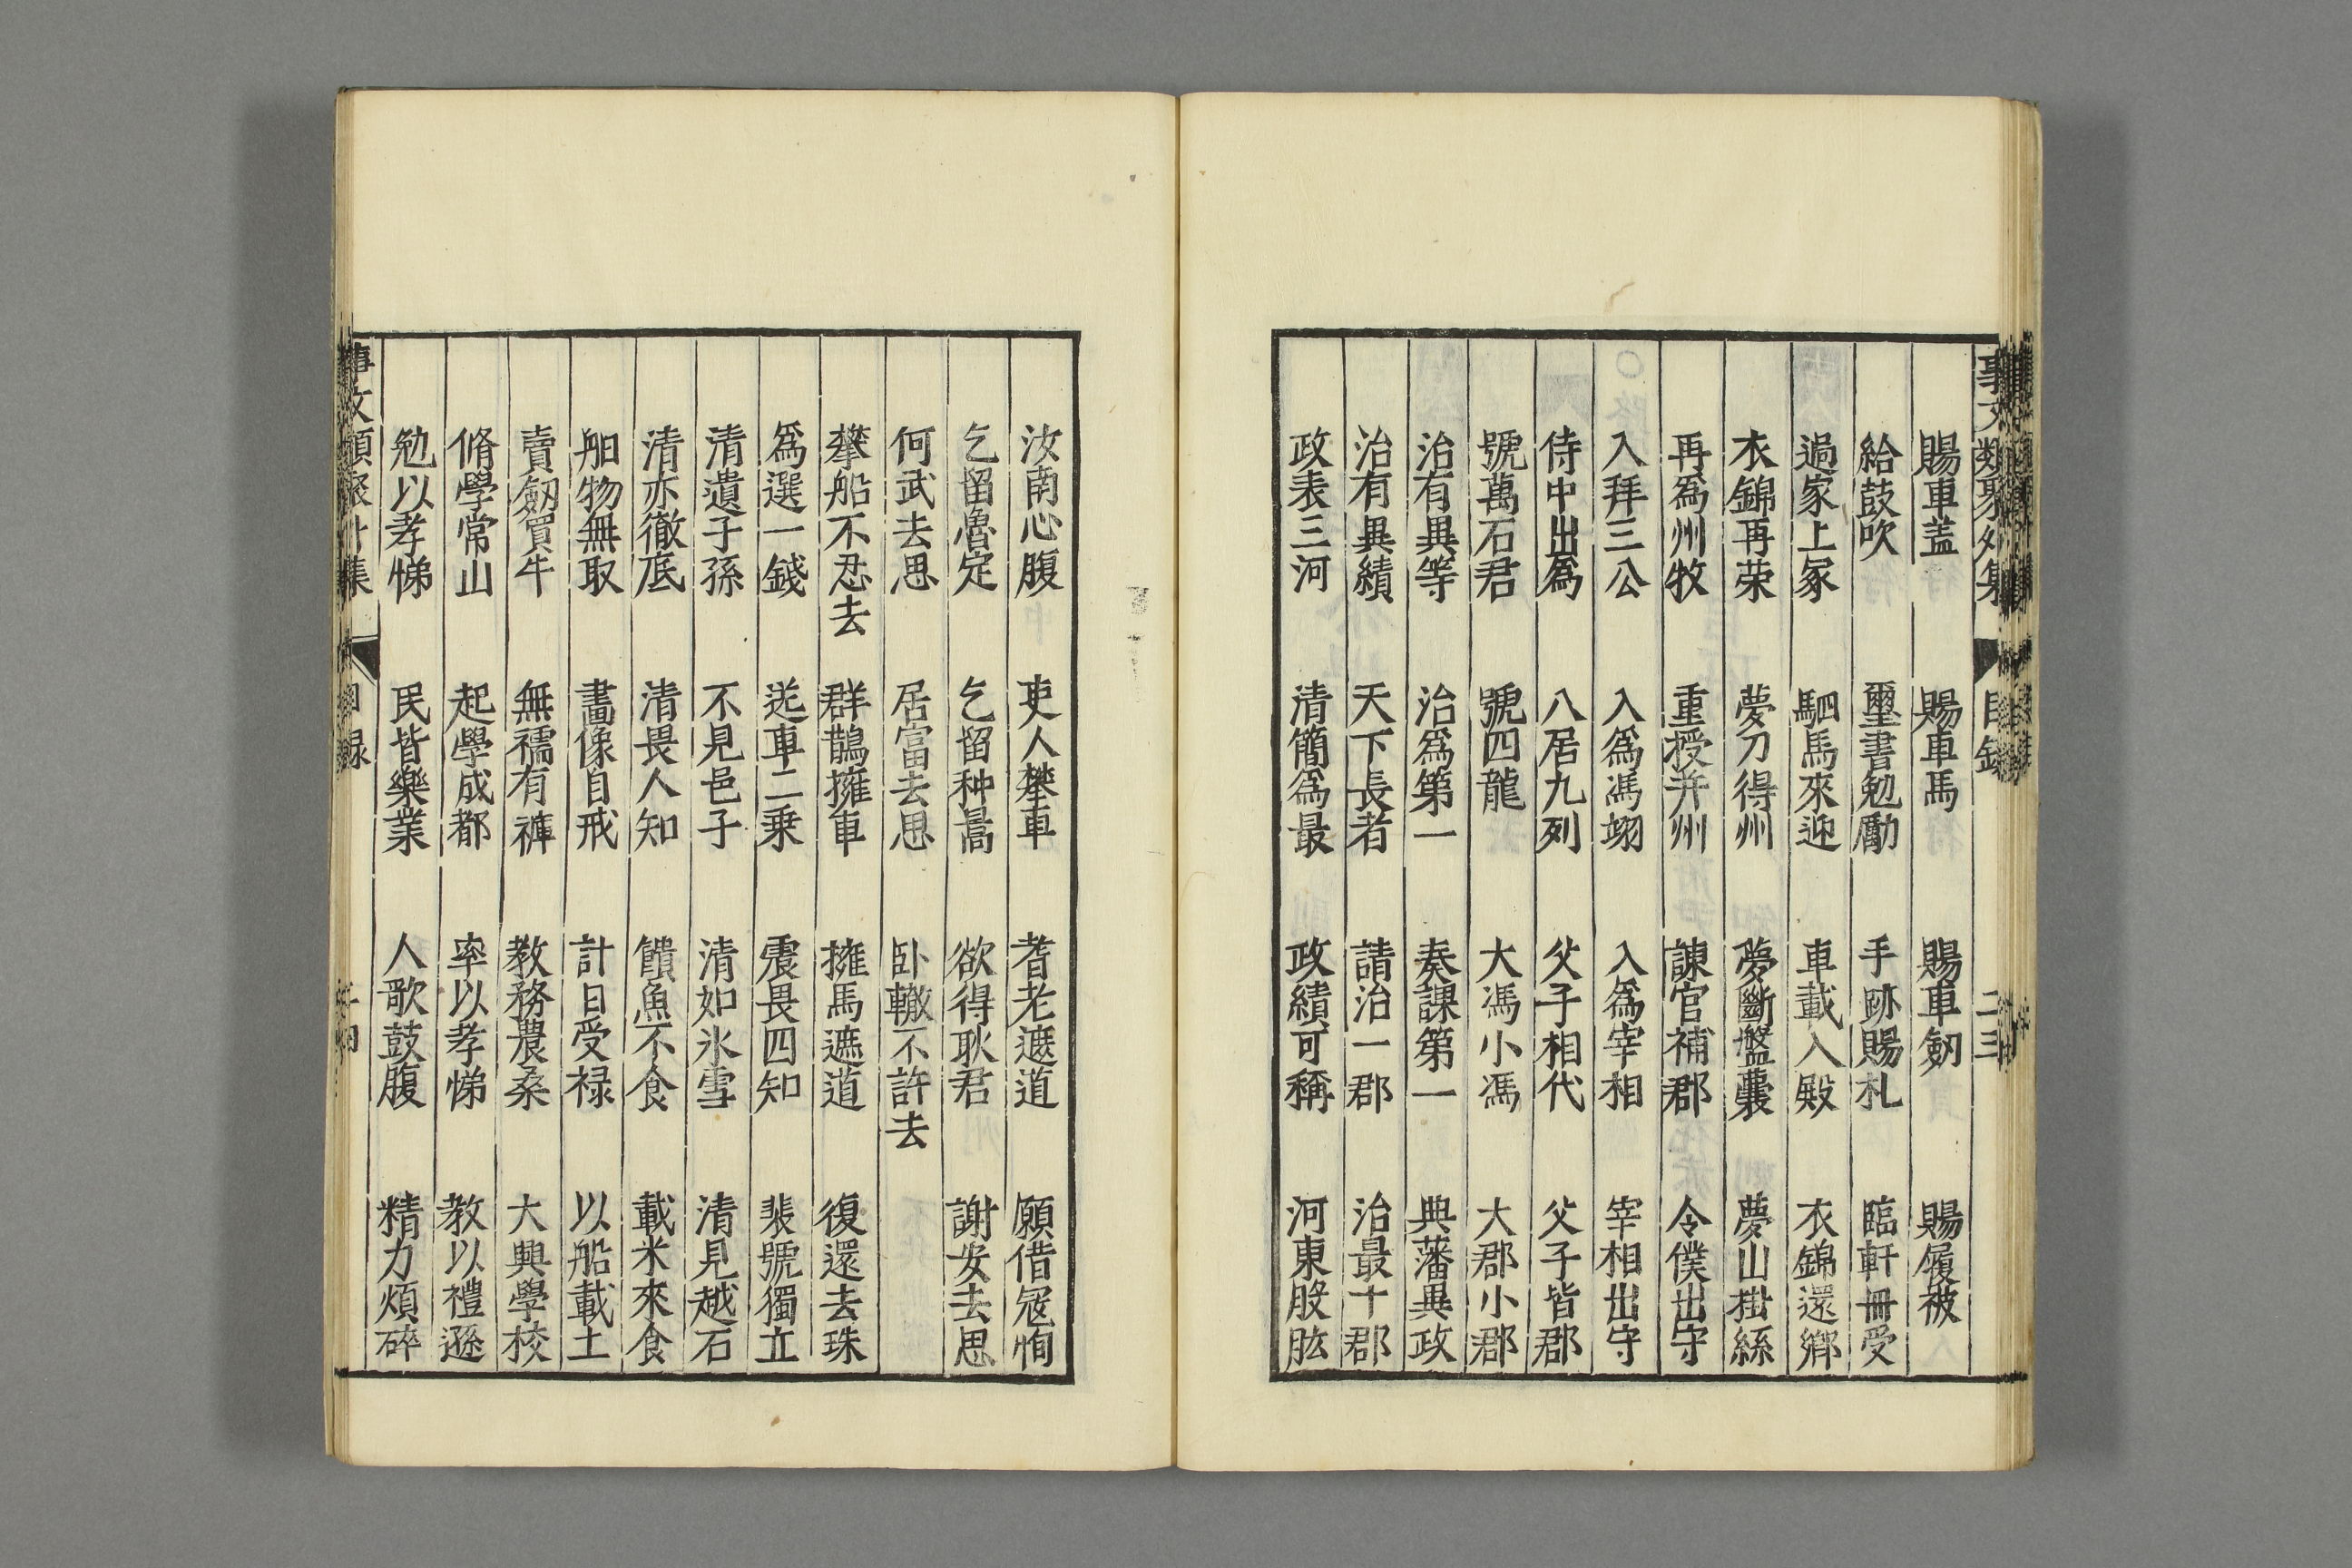 事文類聚外集 目録 二三
賜車蓋 賜車馬 賜車劒 賜履被
給鼓吹 璽書勉勵 手跡賜札 臨軒冊受
過家上冢 駟馬來迎 車載入殿 衣錦還鄉
衣錦再荣 夢刀得州 夢斷盤囊 夢山掛絲
再爲州牧 重授并州 諫官補郡 令僕出守
入拜三公 入爲馮翊 入爲宰相 宰相出守
侍中出爲 八居九列 父子相代 父子皆郡
號萬石君 號四龍 大馮小馮 大郡小郡
治有異等 治爲第一 奏課第一 典藩異政
治有異績 天下長者 請治一郡 治最十郡
政表三河 清簡爲最 政績可稱 河東股肱
汝南心腹 吏人攀車 耆老遮道 願借冦恂
乞留魯定 乞留种暠 欲得耿君 謝安去思
何武去思 居富去思 卧轍不許去
攀船不忍去 群鵲擁車 擁馬遮道 復還去珠
爲選一錢 送車二乗 震畏四知 裴號獨立
清遺子孫 不見邑子 清如氷雪 清見越石
清亦徹底 清畏人知 饋魚不食 載米來食
船物無取 畫像自戒 計日受禄 以船載土
賣劒買牛 無襦有褲 教務農桑 大興學校
脩學常山 起學成都 率以孝悌 教以禮遜
勉以孝悌 民皆樂業 人歌鼓腹 精力煩碎
事文類聚外集 目録